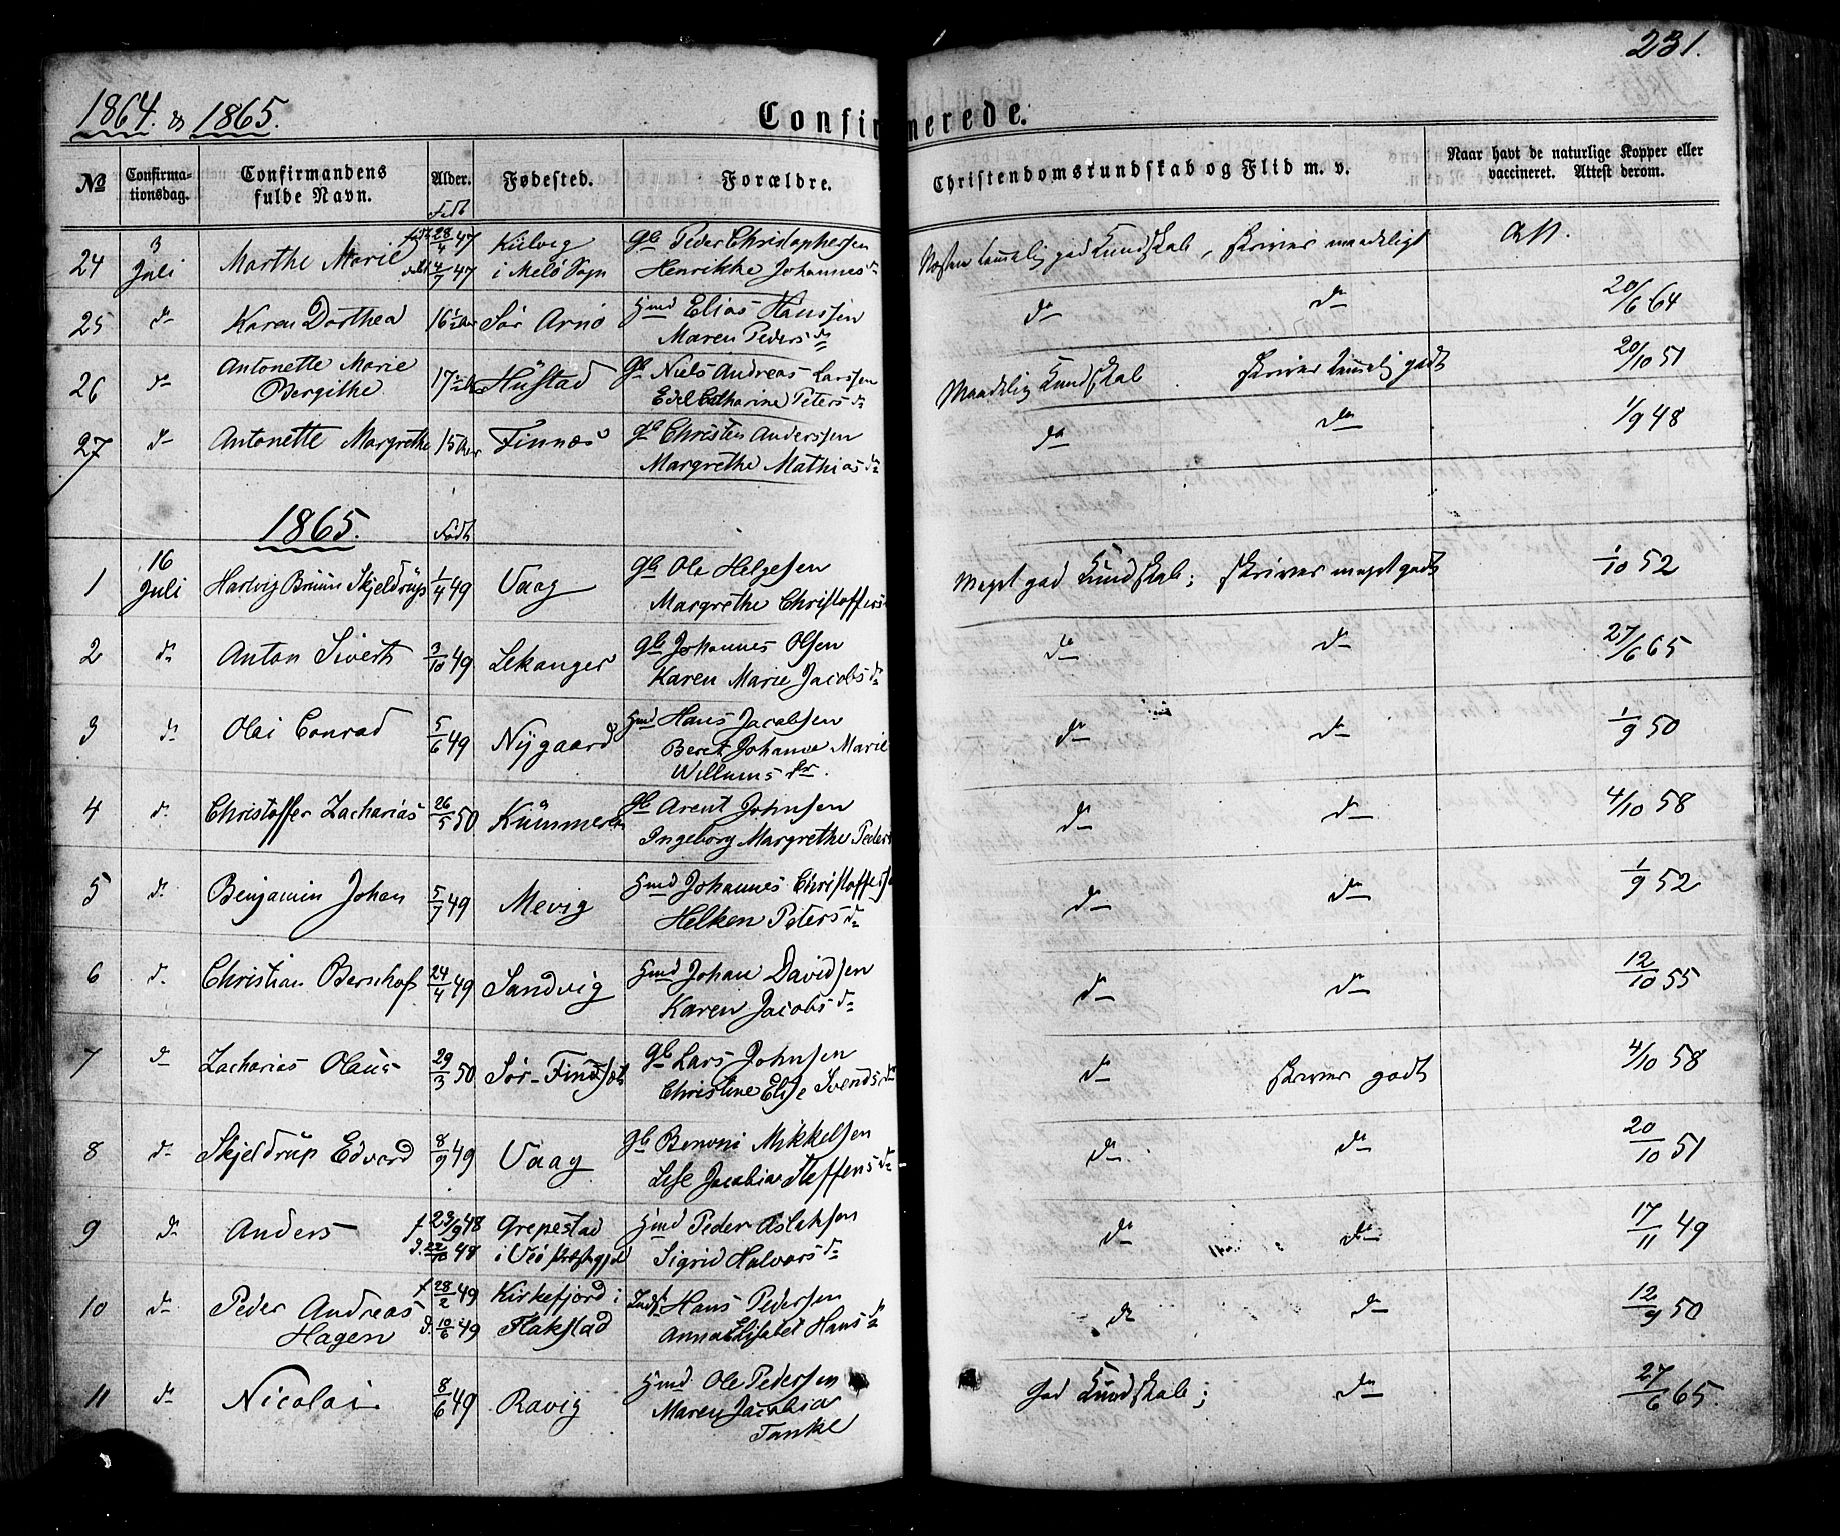 231.
1864. & 1865.
Confirmerede.
No
Confirmationsdag.
Confirmandens fulde Navn.
Alder.
Fødested.
Forældre.
Christendomskundskab og Flid m. v.
Naar havt de naturlige Kopper eller vaccineret. Attest derom.
Født
24 3 Juli Marthe Marie født 28/4 47 døbt 4/7 47 Kilvig i Melö Sogn Gb Peder Christophersen Næsten temmelig god Kundskab, skriver maadeligt
Henrikke Johannesdr
25 do Karen Dorthea 16 1/2 Aar Sör Arnö Hmd Elias Hanssen do do 20/6 64
Maren Pedersdr
26 do Antonette Marie Bergithe 17 1/2 Aar Hustad Gb Niels Andreas Larssen Maadelig Kundskab skriver temmelig godt 20/10 51
Edel Catharine Petersdr
27 do Antonette Margrethe 15 Aar Finnæs Gb Christen Anderssen do do 1/9 48
Margrethe Mathiasdr
1865.
Født
1 16 Juli Hartvig Bruun Skjeldrup 1/4 49 Vaag Gb Ole Helgesen Meget god Kundskab; skriver meget godt 1/10 52
Margrethe Christoffers
2 do Anton Sivert 3/10 49 Lekanger Gb Johannes Olsen do do 27/6 65
Karen Marie Jacobsdr
3 do Olai Conrad 5/6 49 Nygaard Hmd Hans Jacobsen do do 1/9 50
Beret Johanne Marie
Willumsdr.
4 do Christoffer Zacharias 26/5 50 Gb Arent Johnsen do do 4/10 58
Ingeborg Margrethe Peders
5 do Benjamin Johan 5/7 49 Mevig Hmd Johannes Christoffers do do 1/9 52
Helken Petersdr
6 do Christian Bernhof 24/4 49 Sandvig Hmd Johan Davidsen do do 12/10 55
Karen Jacobsdr
7 do Zacharias Olaus 29/3 50 Gb Lars Johnsen do skriver godt 4/10 58
Christine Elise Svendsdr
8 do Skjeldrup Edvard 8/9 49 Vaag Gb Benoni Mikkelsen do do 20/10 51
Lise Jacobia Steffensdr
9 do Anders f 23/9 48 d. 22/10 48 Grepestad Hmd Peder Aslaksen do do 17/11 49
Sigrid Halvorsdr
10 do Peder Andreas Hagen f 28/2 49 d. 10/6 49 Kirkefjord i Flakstad Inds Hans Pedersen do do 12/9 50
Anna Elisabet Hansdr
11 do Nicolai 8/6 49 Ravig Hmd Ole Pedersen God Kundskab; do 27/6 65.
Maren Jacobia
Tanke